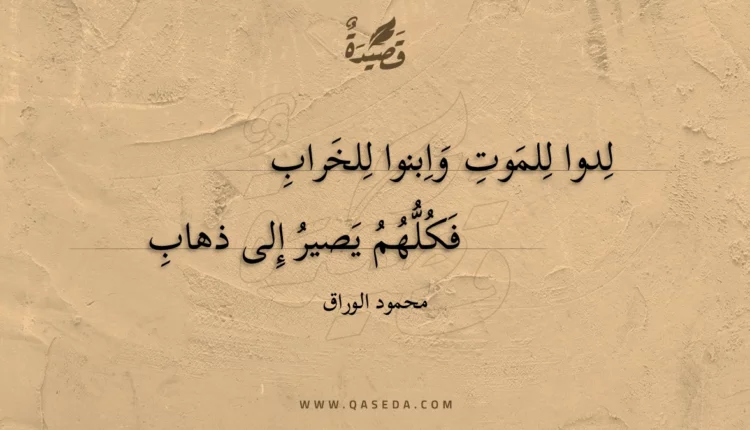 قَصِيْدَةٌ
لِدوا لِلمَوتِ وَاِبنوا لِلخَرابِ
فَكُلُّهُمُ يَصيرُ إِلى ذهابِ
محمود الوراق
WWW.QASEDA.COM